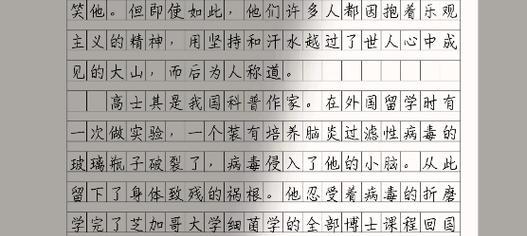 笑他。但即使如此，他们许多人都因抱着乐观
主义的精神，用坚持和汗水越过了世人心中成
见的大山，而后为人称道。
高士其是我国科普作家。在外国留学时有
一次做实验，一个装有培养脑炎过滤性病毒的
玻璃瓶子破裂了，病毒侵入了他的小脑。从此
留下了身体致残的祸根。他忍受着病毒的折磨
学完了芝加哥大学细菌学的全部博士课程回国